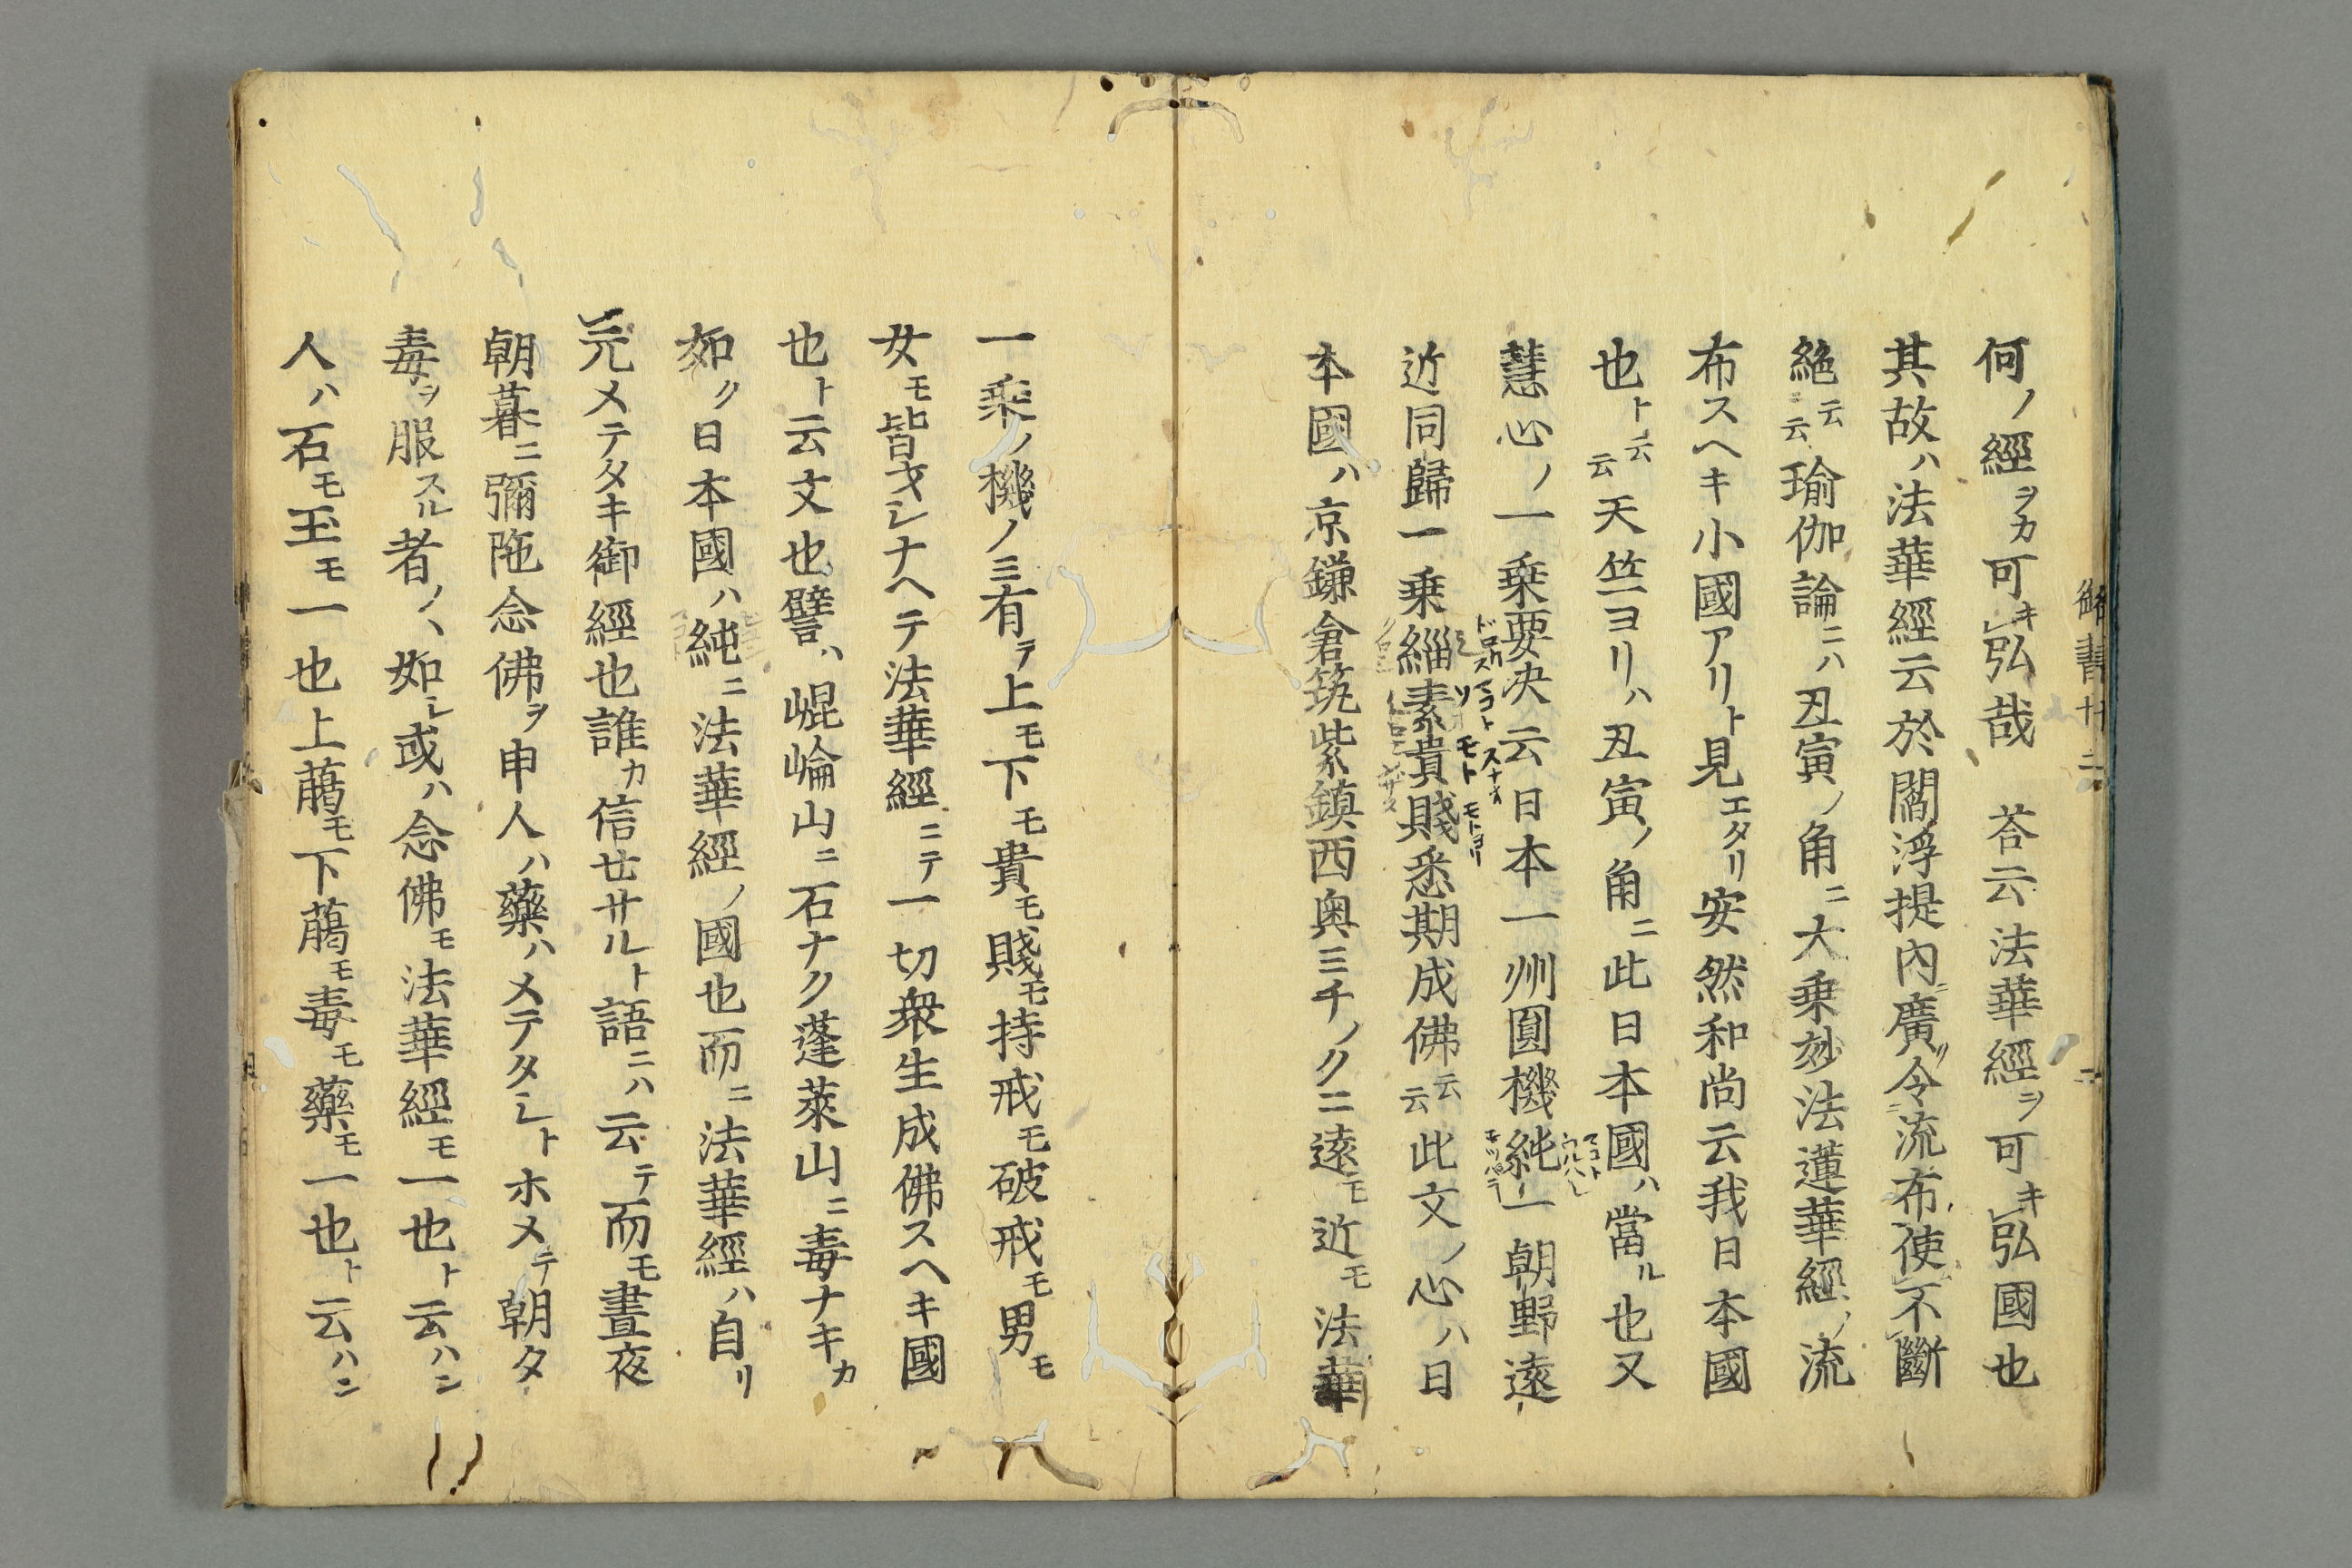 御書廿二 二
何ノ經ヲカ可キ弘哉 荅云法華經ヲ可キ弘國也
其故ハ法華經云於閻浮提内廣令流布使不斷
絶云云瑜伽論ニハ丑寅ノ角ニ大乗妙法蓮華經ノ流
布スヘキ小國アリト見エタリ安然和尚云我日本國
也ト云云天竺ヨリハ丑寅ノ角ニ此日本國ハ當ル也又
慧心ノ一乗要决云日本一州圓機純一朝野遠
近同歸一乗緇素貴賤悉期成佛云云此文ノ心ハ日
本國ハ京鎌倉筑紫鎮西奥ミチノクニ遠モ近モ法華
一乗ノ機ノミ有テ上モ下モ貴モ賤モ持戒モ破戒モ男モ
女モ皆ヲシナヘテ法華經ニテ一切衆生成佛スヘキ國
也ト云文也譬ハ崐崘山ニ石ナク蓬萊山ニ毒ナキカ
如ク日本國ハ純ニ法華經ノ國也而ニ法華經ハ自リ
元メテタキ御經也誰カ信せサルト語ニハ云テ而モ晝夜
朝暮ニ彌陁念佛ヲ申人ハ藥ハメテタシトホメテ朝夕
毒ヲ服スル者ノ如シ或ハ念佛モ法華經モ一也ト云ハン
人ハ石モ玉モ一也上﨟モ下﨟モ毒モ藥モ一也ト云ハン